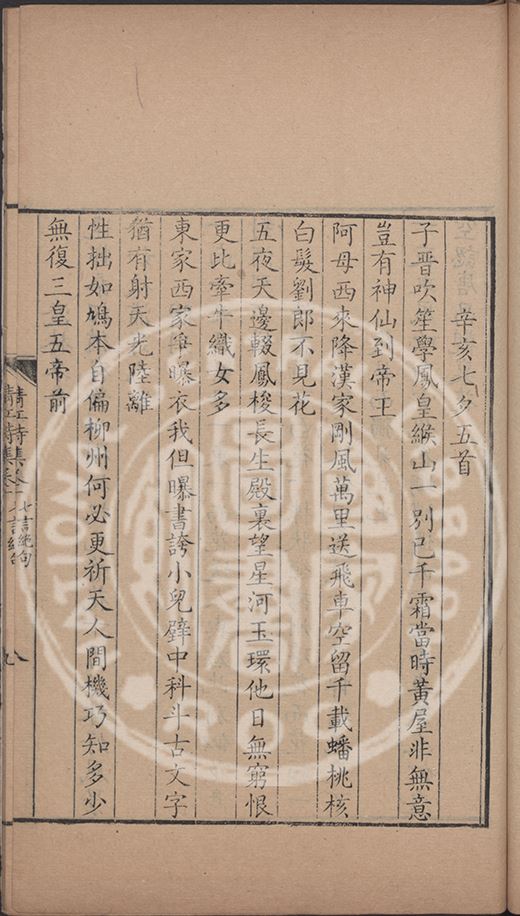 辛亥七夕五首
子晉吹笙學鳳皇緱山一別已千霜當時黃屋非無意
豈有神仙到帝王
阿母西來降漢家剛風萬里送飛車空留千載蟠桃核
白髮劉郎不見花
五夜天邊輟鳳梭長生殿裏望星河玉環他日無窮恨
更比牽牛織女多
東家西家爭曝衣我但曝書誇小兒壁中科斗古文字
猶有射天光陸離
性拙如鳩本自偏柳州何必更祈天人間機巧知多少
無復三皇五帝前
七言絕句